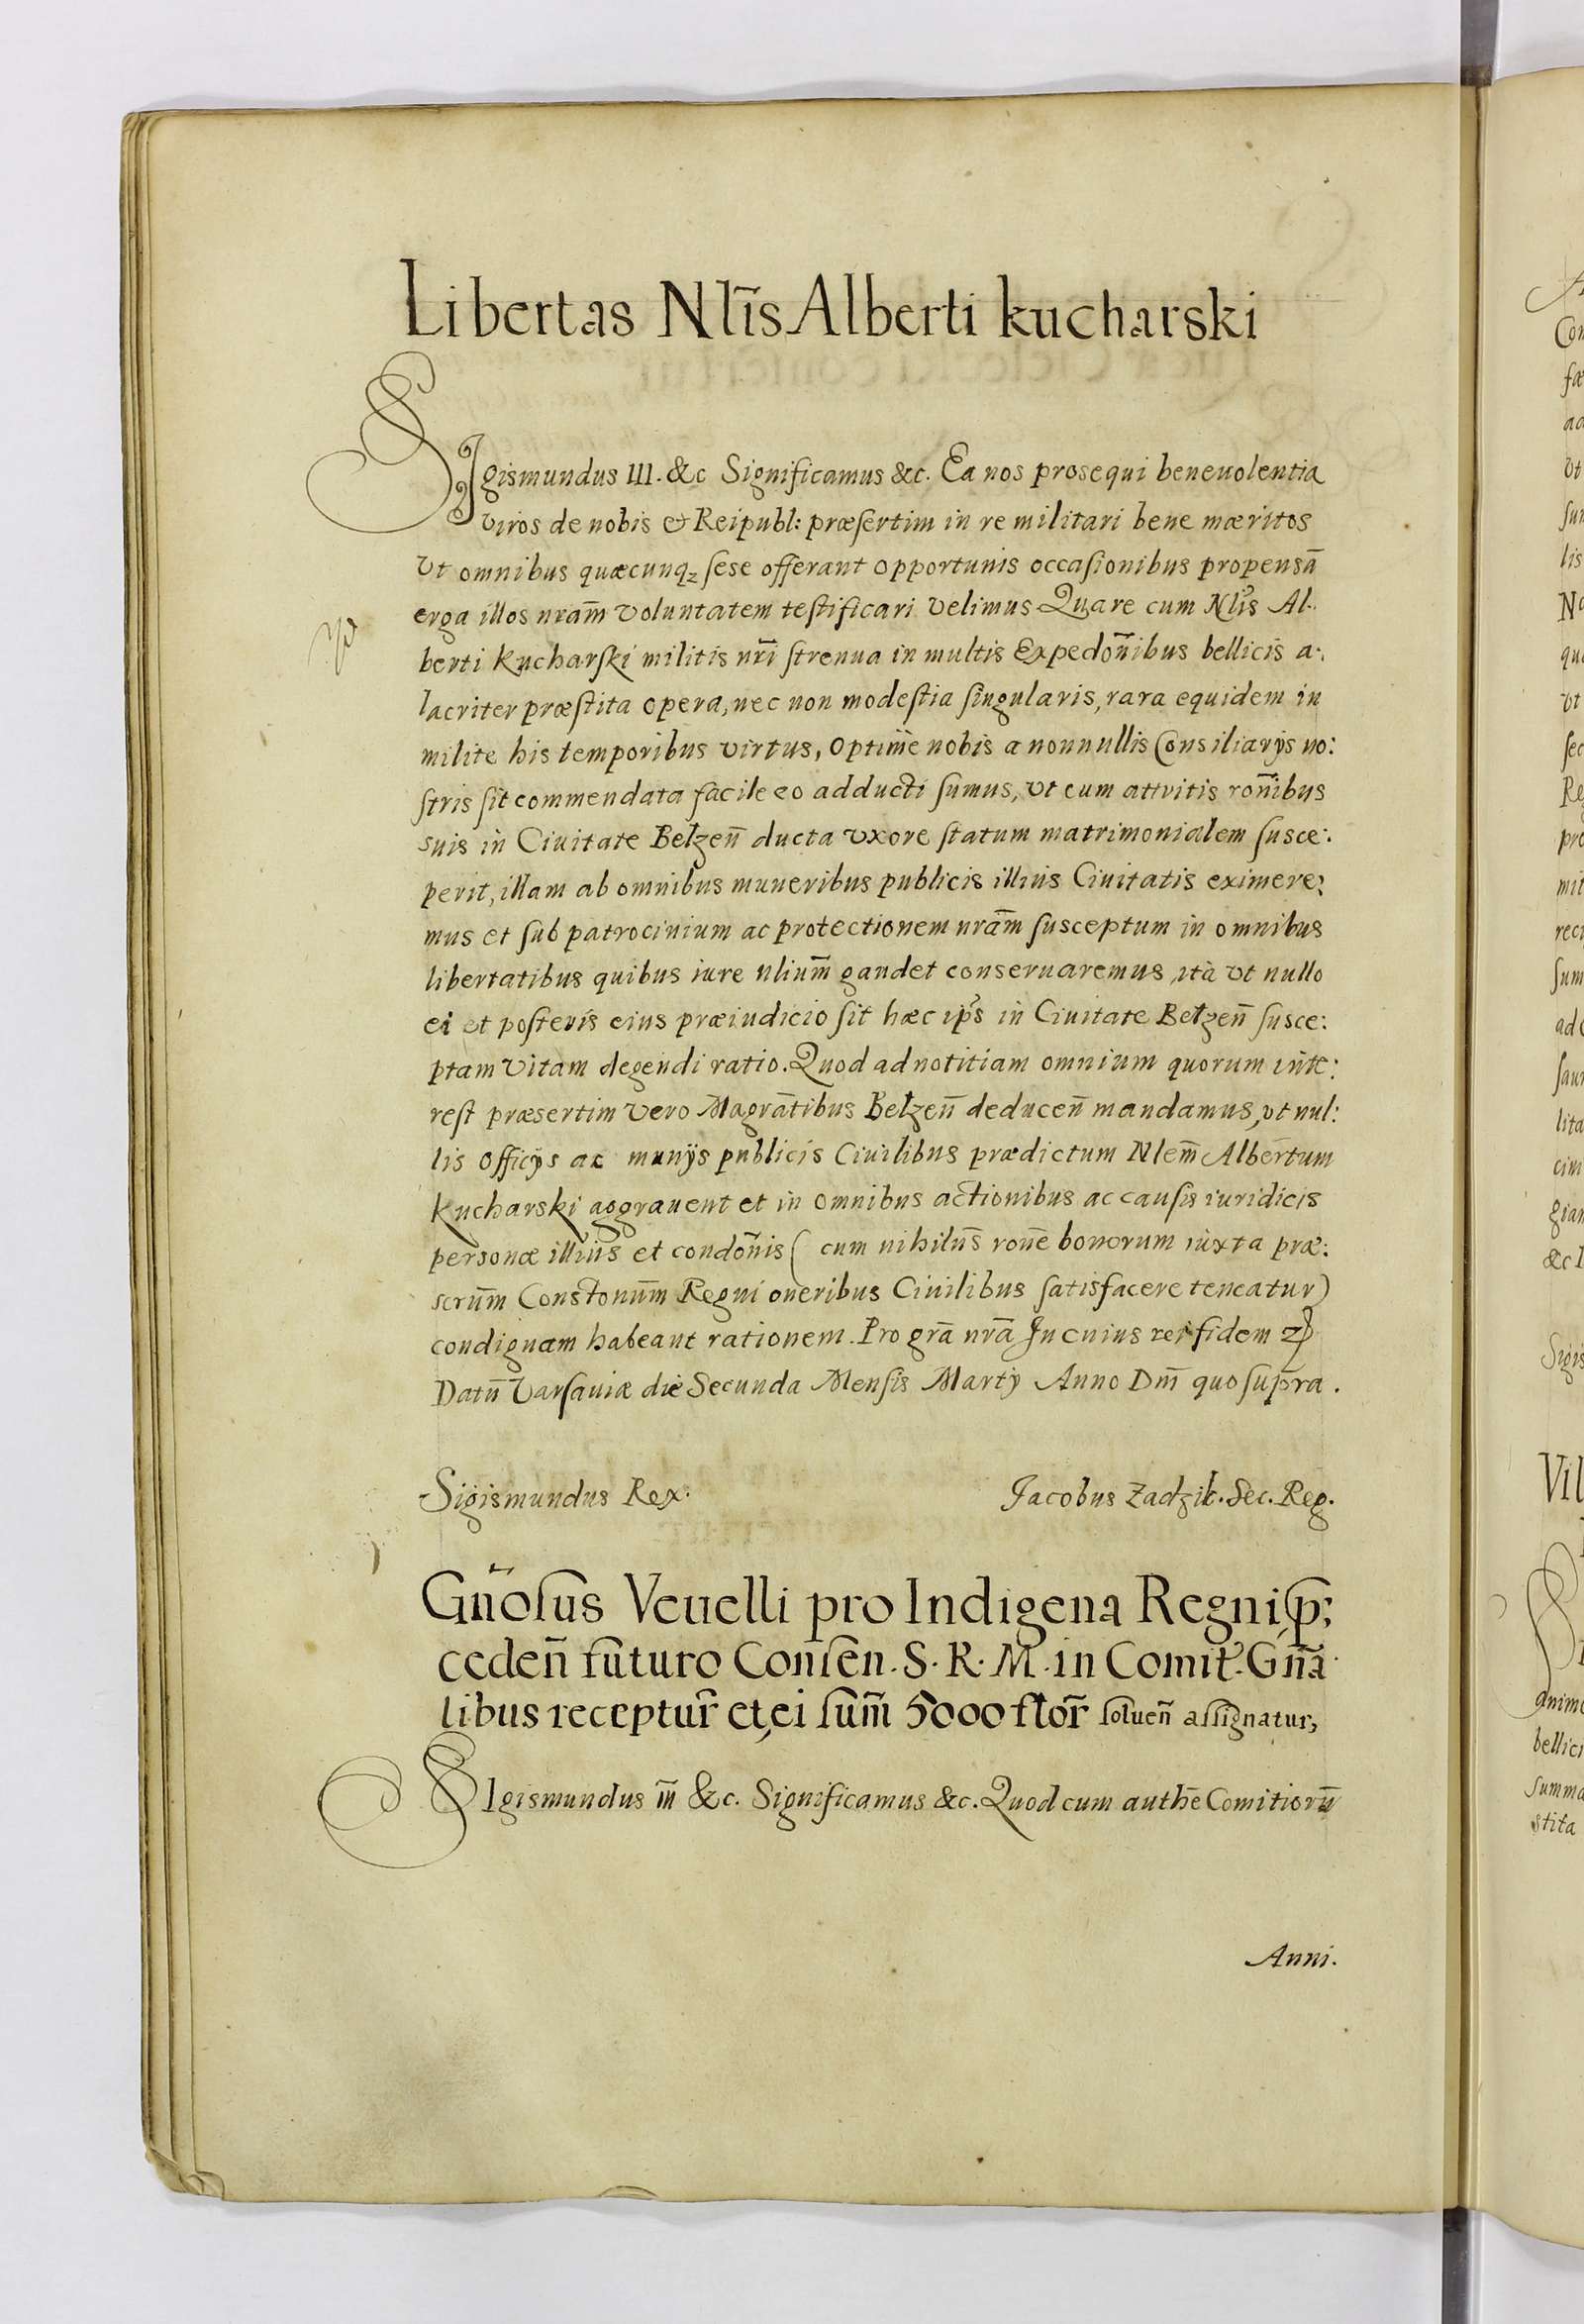 Libertas Nlīs Alberti kucharski
SIgismundus III. &c Significamus &c. Ea nos prosequi beneuolentia
viros de nobis & Reipubl: præsertim in re militari bene mæritos
vt omnibus quæcunqꝫ sese offerant opportunis occasionibus propensā
erga illos nram̄ voluntatem testificari velimus Quare cum Nlīs Al-
berti Kucharski militis nrī strenua in multis Expedon̄ibus bellicis a-
lacriter præstita opera, nec non modestia singularis, rara equidem in
milite his temporibus virtus, optime nobis a nonnullis Consiliarijs no:
stris sit commendata facile eo adducti sumus, vt cum attritis ron̄ibus
suis in Ciuitate Bełzen̄ ducta vxore statum matrimonialem susce:
perit, illam ab omnibus muneribus publicis illius Ciuitatis eximere:
mus et sub patrocinium ac protectionem nram̄ susceptum in omnibus
libertatibus quibus iure nlium̄ gaudet conseruaremus, ità vt nullo
ei et posteris eius præiudicio sit hæc ip̄s in Ciuitate Bełzen̄ susce:
ptam vitam degendi ratio. Quod ad notitiam omnium quorum inte:
rest præsertim vero Magrātibus Bełzen̄ deducen̄ mandamus, vt nul:
lis officijs ac munijs publicis Ciuilibus prædictum Nlem̄ Albertum
Kucharski aggrauent et in omnibus actionibus ac causis iuridicis
personæ illius et condon̄is ( cum nihilus̄ rone̅ bonorum iuxta præ:
scrum̄ Constonum̄ Regni oneribus Ciuilibus satisfacere teneatur)
condignam habeant rationem. Pro grā nrā In cuius rei fidem
Datn̄ Varsauiæ die Secunda Mensis Martij Anno Dm̄ quo supra.
Sigismundus Rex.
Jacobus Zadzik. Sec. Reg.
Gn̄osus Veuelli pro Indigena Regni p̱:
ceden̄ futuro Consen. S. R. M. in Comit. Gn̄a
libus receptur̄ et, ei sum̄ 5000 flor̄ soluen̄ assignatur,
SIgismundus III &c. Significamus &c. Quod cum authē Comitiorū
Anni.